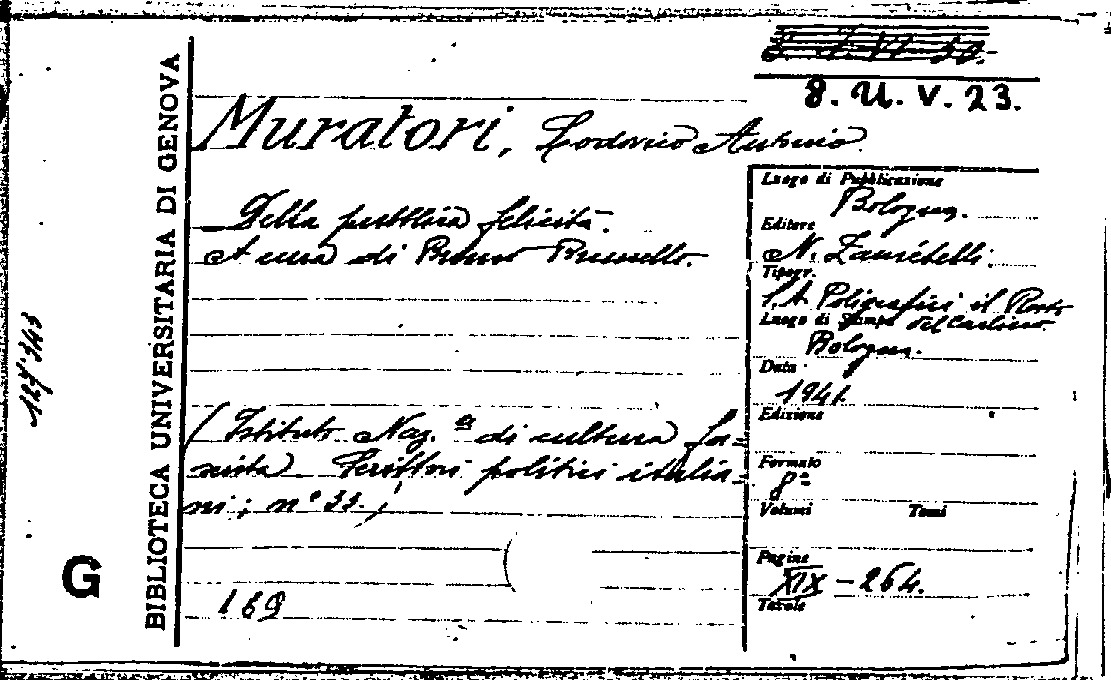 8. U. V. 23.
Muratori, Lodovico Antonio
Della pubblica felicità.
A cura di Bruno Brunello.
(Istituto Naz.le di cultura fa=
scista Scrittori politici italia=
ni; n° 33.)
169
Luogo di Pubblicazione
Bologna.
Editore
N. Zanichelli.
Tipogr.
S. A. Poligrafici il Resto
del Carlino
Luogo di Stampa
Bologna.
Data
1941
Edizione
Formato
8°
Volumi Tomi
Pagine
XIX - 264.
Tavole
BIBLIOTECA UNIVERSITARIA DI GENOVA
G